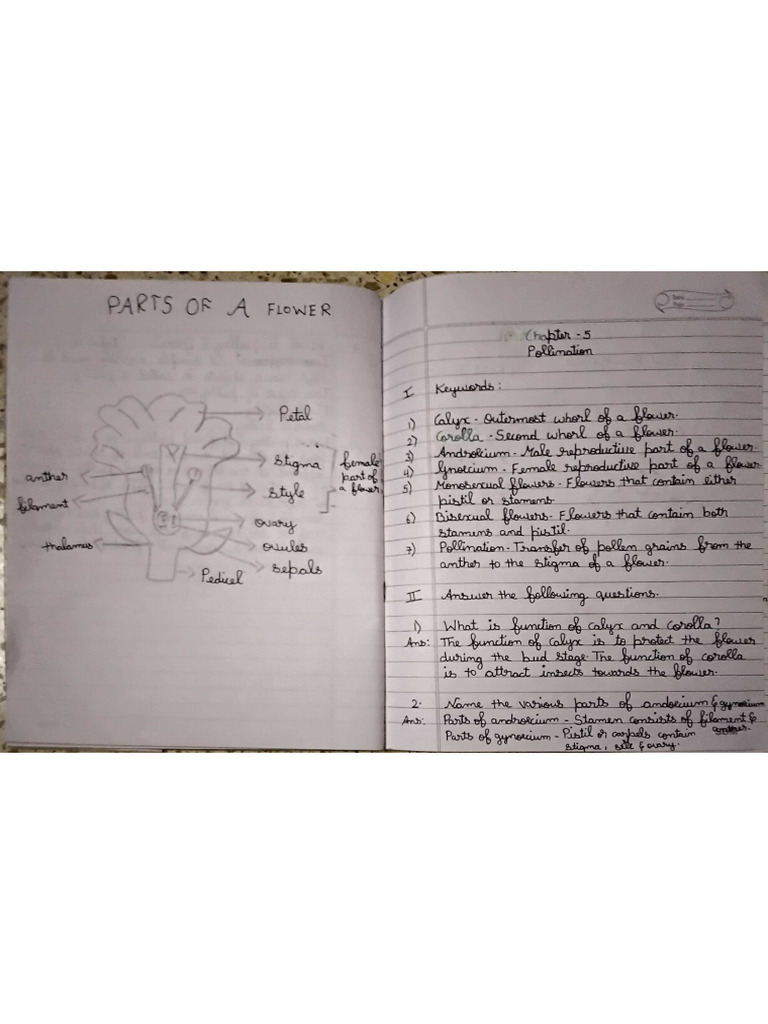 PARTS OF A FLOWER
Petal
stigma
style
female
part of
a flower
anther
filament
thalamus
ovary
ovules
sepals
Pedicel
Chapter - 5
Pollination
I Keywords:
1) Calyx - Outermost whorl of a flower.
2) Corolla - Second whorl of a flower.
3) Androecium - Male reproductive part of a flower
4) Gnoecium - Female reproductive part of a flower
5) Monosexual flowers - Flowers that contain either
pistil or stamens
6) Bisexual flowers - Flowers that contain both
stamens and pistil.
7) Pollination - Transfer of pollen grains from the
anther to the stigma of a flower.
II Answer the following questions.
1) What is function of calyx and corolla?
Ans: The function of calyx is to protect the flower
during the bud stage. The function of corolla
is to attract insects towards the flower.
2. Name the various parts of andoecium & gynoecium
Ans: Parts of androecium - Stamen consists of filament &
Parts of gynoecium - Pistil or carpels contain
stigma, & ovary.